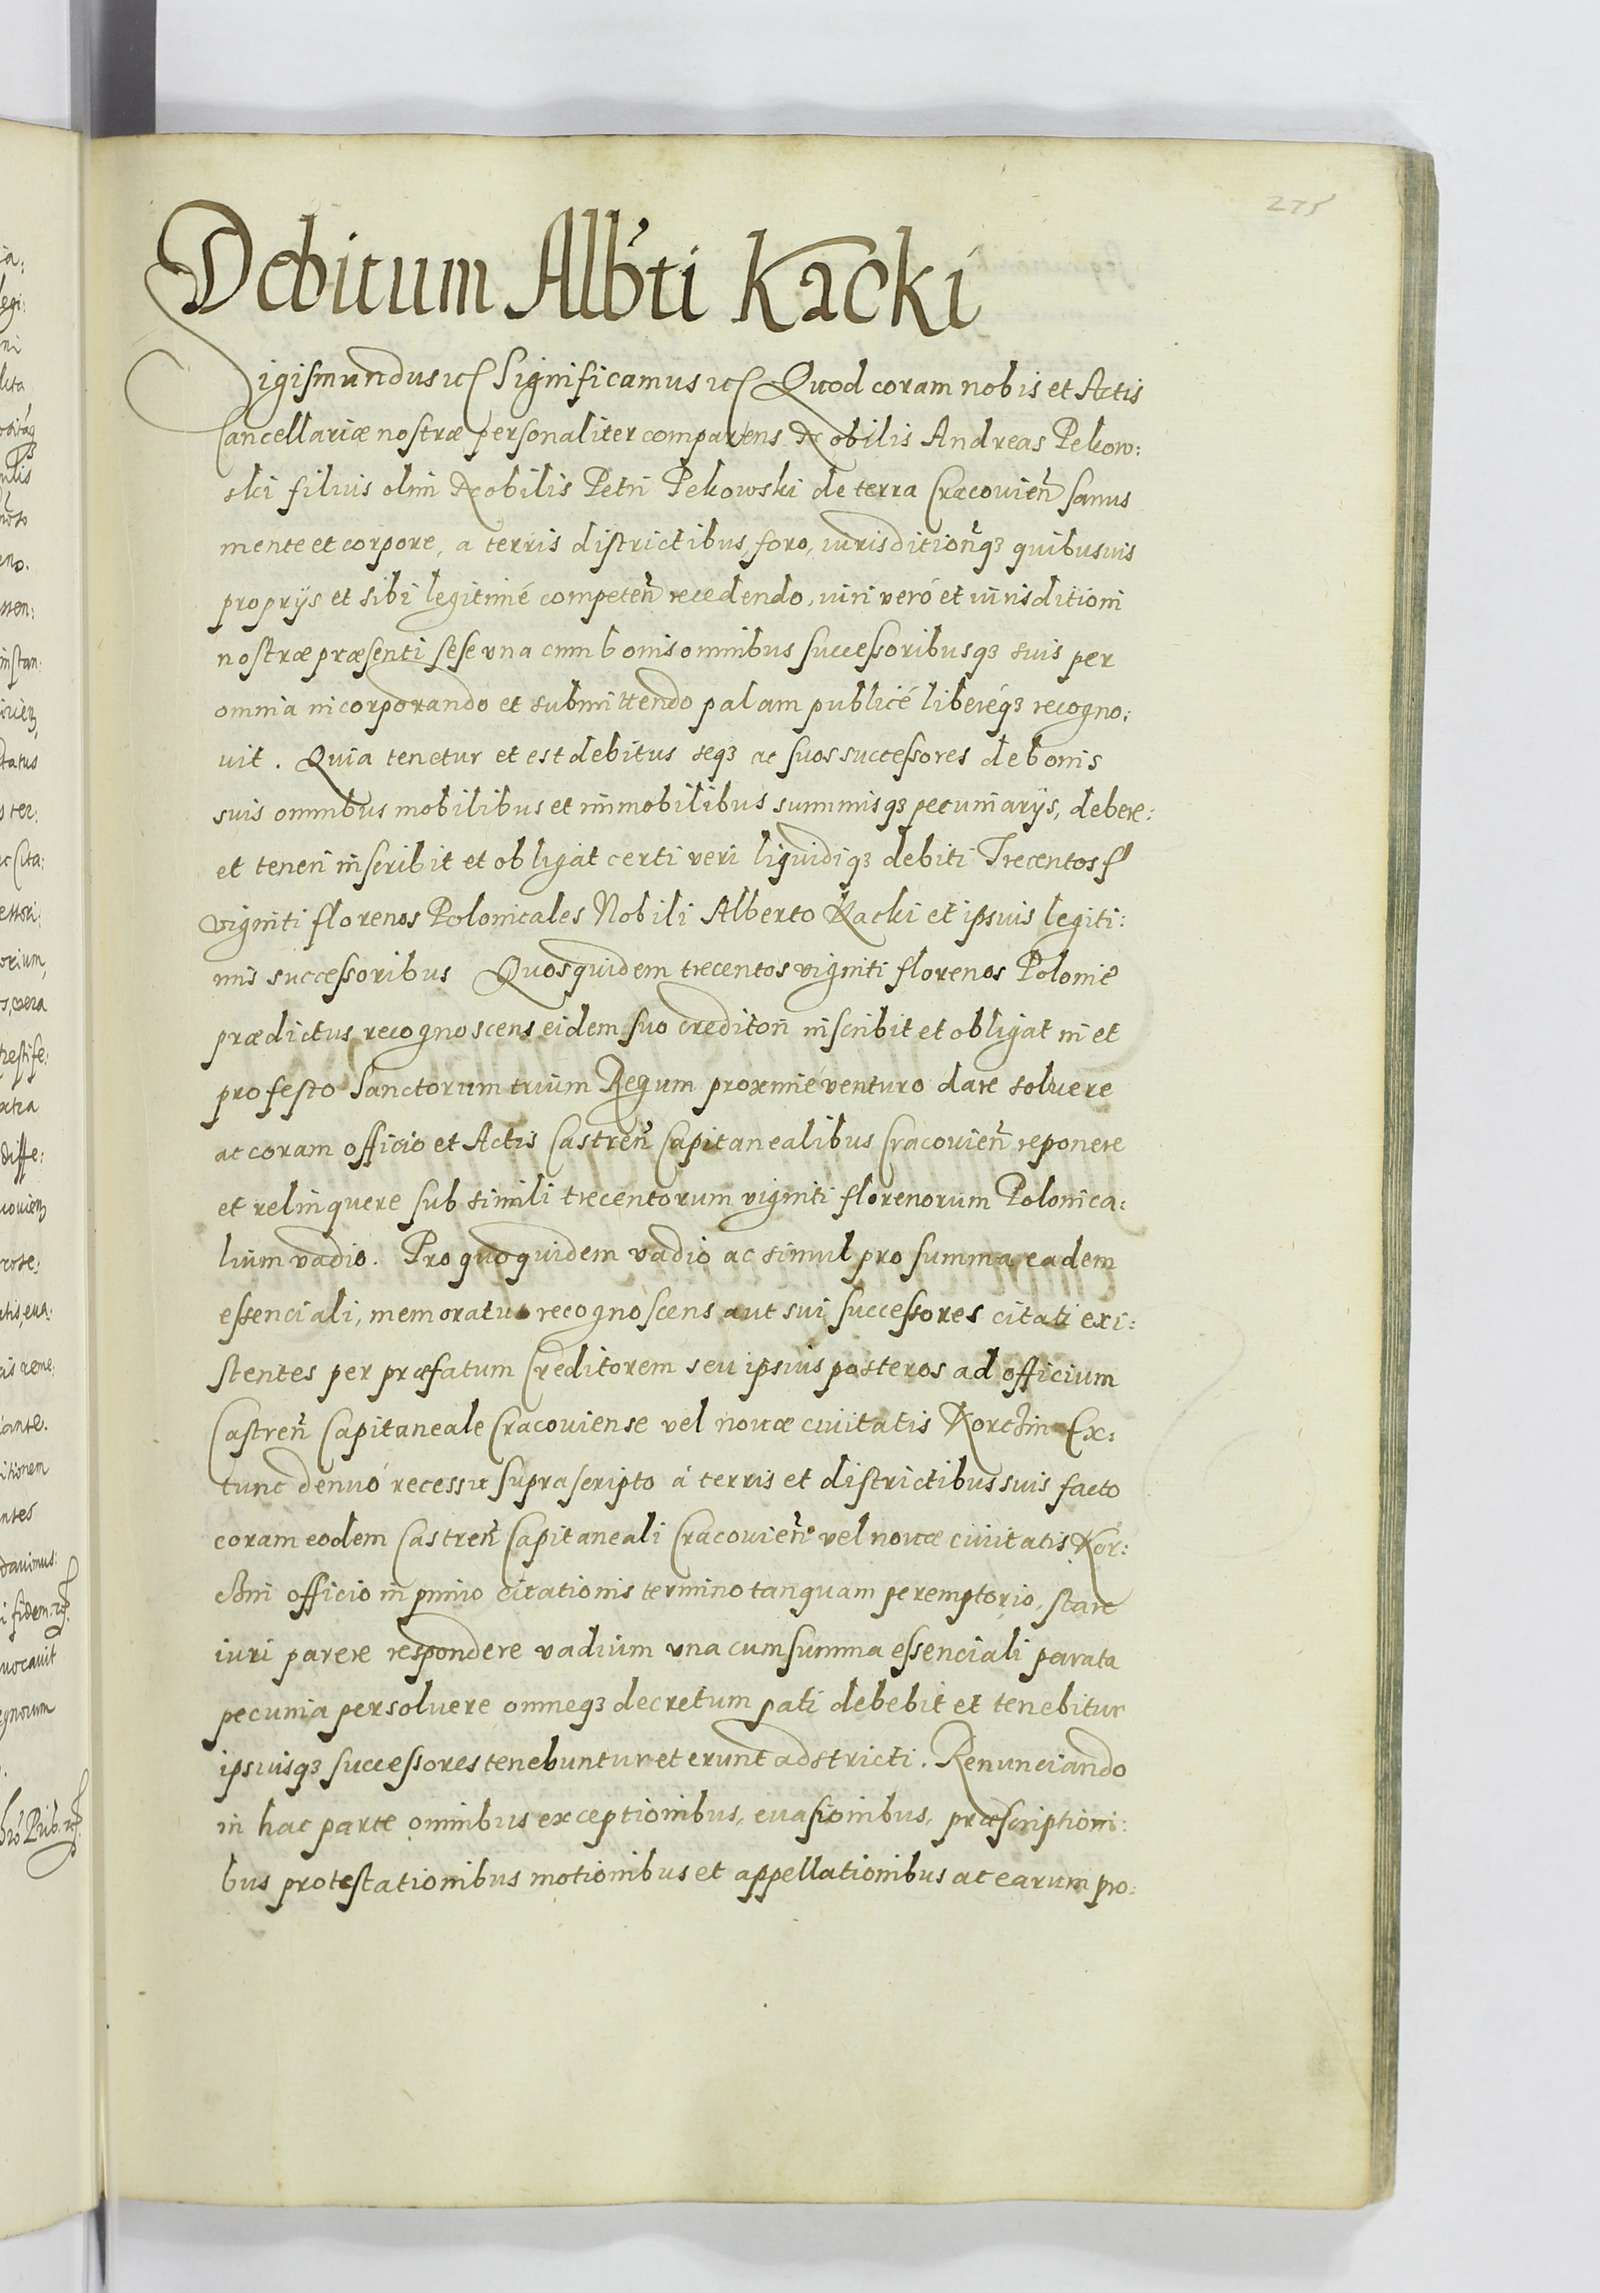 275
Debitum Alb'ti Kacki
Sigismundus etc Significamus etc Quod coram nobis et Actis
Cancellariæ nostræ personaliter comparens Nobilis Andreas Pekow:
ski filius olim Nobilis Petri Pekowski de terra Cracovien̄ sanus
mente et corpore, a terris districtibus, foro, iurisdition̄q3 quibusuis
proprijs et sibi legitimé competen̄ recedendo, iuri veró et iurisditioni
nostræ præsenti sese vna cum bonis omnibus successoribusq3 suis per
omnia incorporando et submittendo palam publicé liberéq3 recogno:
uit. Quia tenetur et est debitus seq3 ac suos successores de bonis
suis omnibus mobilibus et immobilibus summisq3 pecuniarijs, debere:
et teneri inscribit et obligat certi veri liquidiq3 debiti Trecentos
viginti florenos Polonicales Nobili Alberto Kacki et ipsuis legiti:
mis successoribus Quosquidem trecentos viginti florenos Polonic̄
prædictus recognoscens eidem suo creditori inscribit et obligat in et
pro festo Sanctorum trium Regum proximé venturo dare soluere
ac coram officio et Actis Castren̄ Capitanealibus Cracouien̄ reponere
et relinquere sub simili trecentorum viginti florenorum Polonica:
lium vadio. Pro quoquidem vadio ac simul pro summa eadem
essenciali, memoratus recognoscens aut sui successores citati exi:
stentes per præfatum Creditorem seu ipsius posteros ad officium
Castren̄ Capitaneale Cracouiense vel nouæ ciuitatis Korchin Ex:
tunc denuó recessu suprascripto á terris et districtibus suis facto
coram eodem Castren̄ Capitaneali Cracouien̄ vel nouæ ciuitatis Kor:
chin officio in primo citationis termino tanquam peremptorio, stare
iuri parere respondere vadium vna cum summa essenciali parata
pecunia persoluere omneq3 decretum pati debebit et tenebitur
ipsiusq3 successores tenebuntur et erunt adstricti. Renunciando
in hac parte omnibus exceptionibus, euasionibus, præscriptioni:
bus protestationibus motionibus et appellationibus ac earum pro: